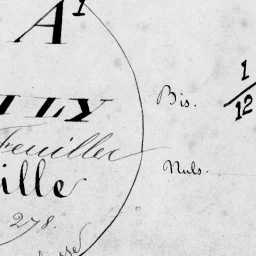 A¹
1/12
LLY
Bis.
Feuilles
Nuls.
ille
278.